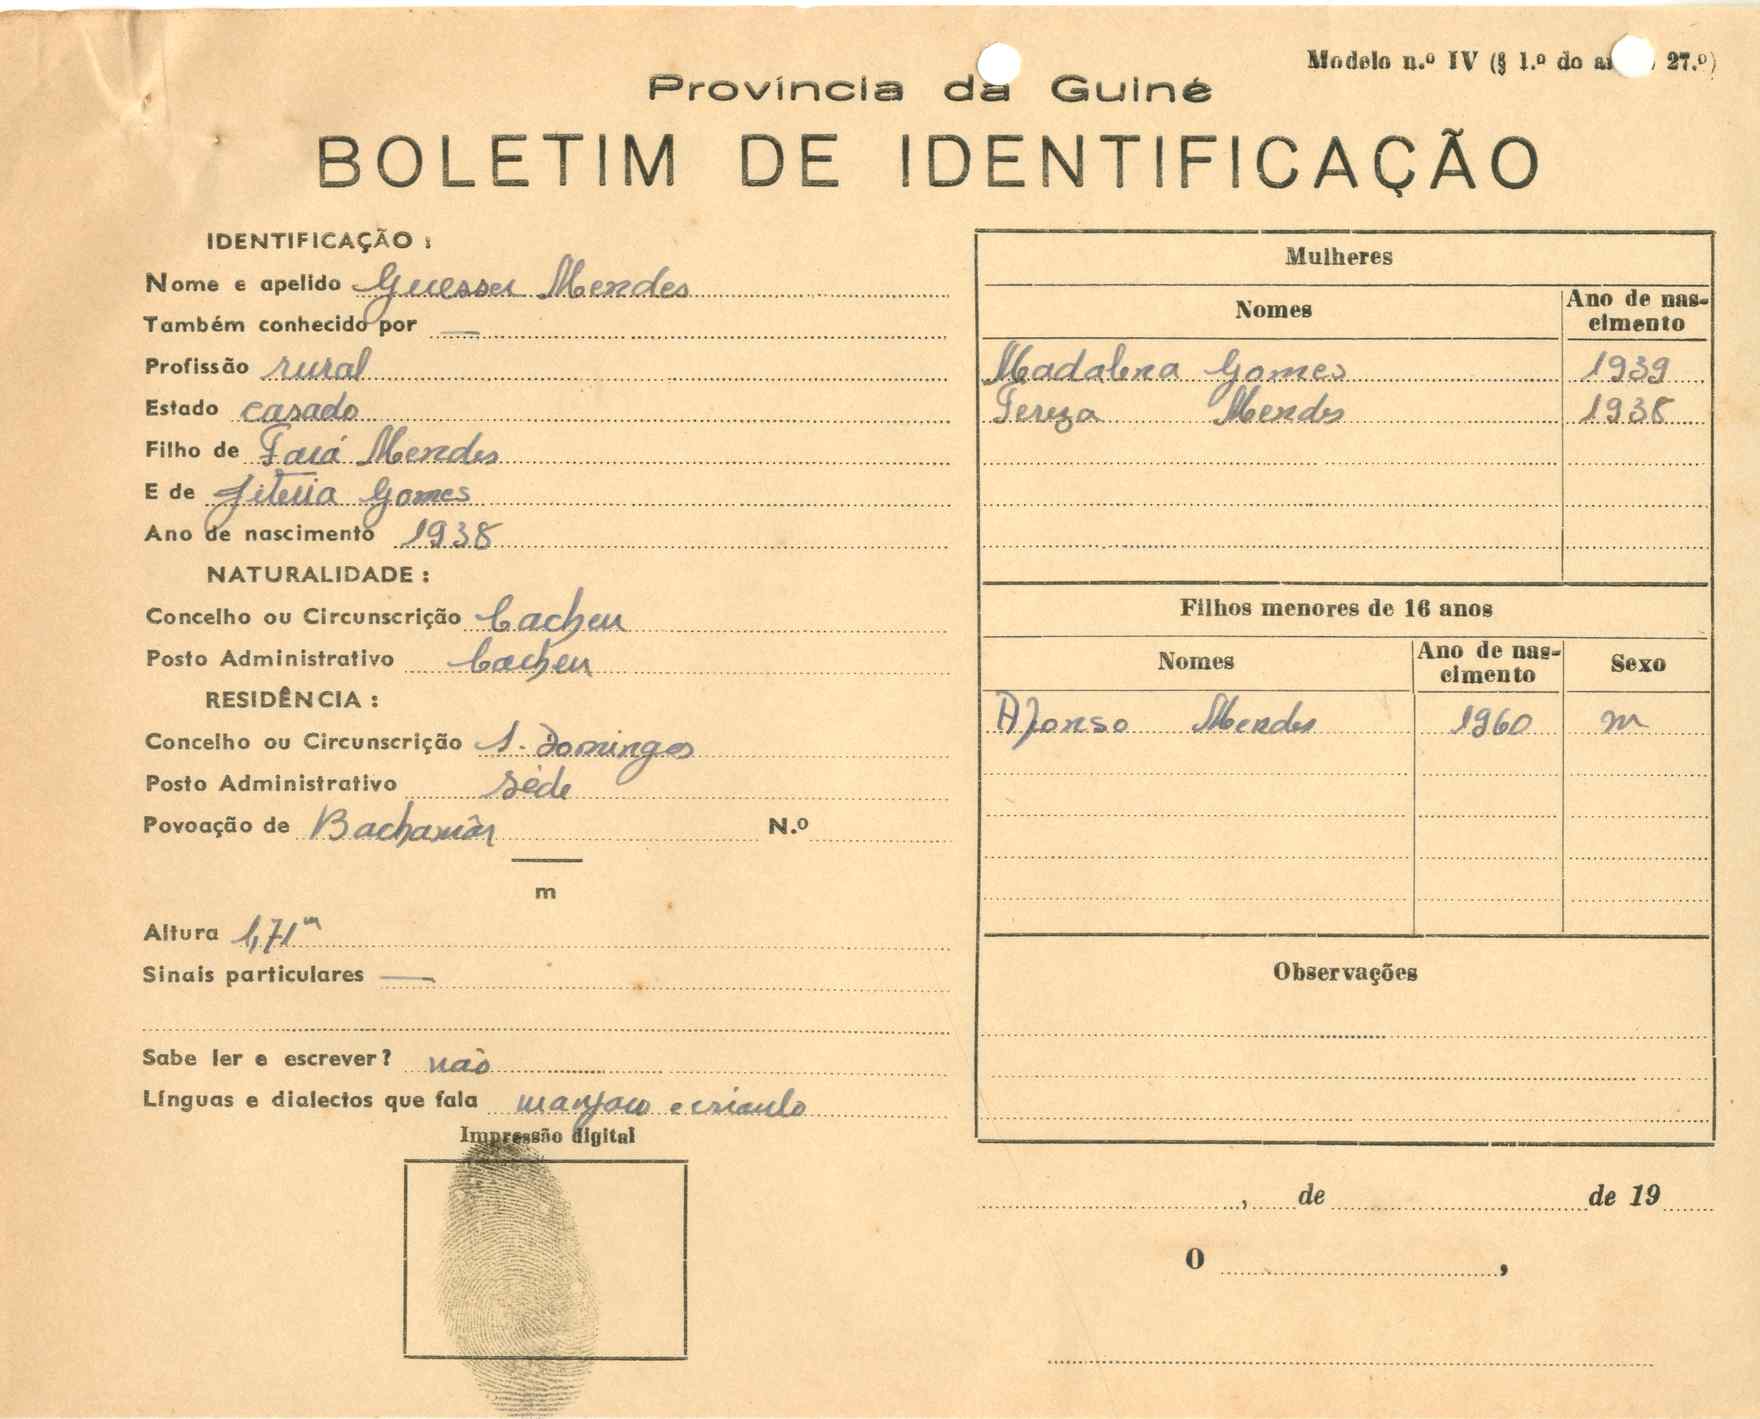 Modelo n.º IV (§ 1.º do 27.º)
Província da Guiné
BOLETIM DE IDENTIFICAÇÃO
IDENTIFICAÇÃO :
Nome e apelido Guessu Mendes
Também conhecido por —
Profissão rural
Estado casado
Filho de Mendes
E de Gomes
Ano de nascimento 1938
NATURALIDADE :
Concelho ou Circunscrição Cacheu
Posto Administrativo Cacheu
RESIDÊNCIA :
Concelho ou Circunscrição S. Domingos
Posto Administrativo Séde
Povoação de N.º
m
Altura 1,71m
Sinais particulares —
Sabe ler e escrever? não
Línguas e dialectos que fala manjaco e crioulo
Impressão digital
Mulheres
Nomes Ano de nas-
cimento
Madalena Gomes 1939
Tereza Mendes 1938
Filhos menores de 16 anos
Nomes Ano de nas-
cimento Sexo
Afonso Mendes 1960 m
Observações
, de de 19
O ,